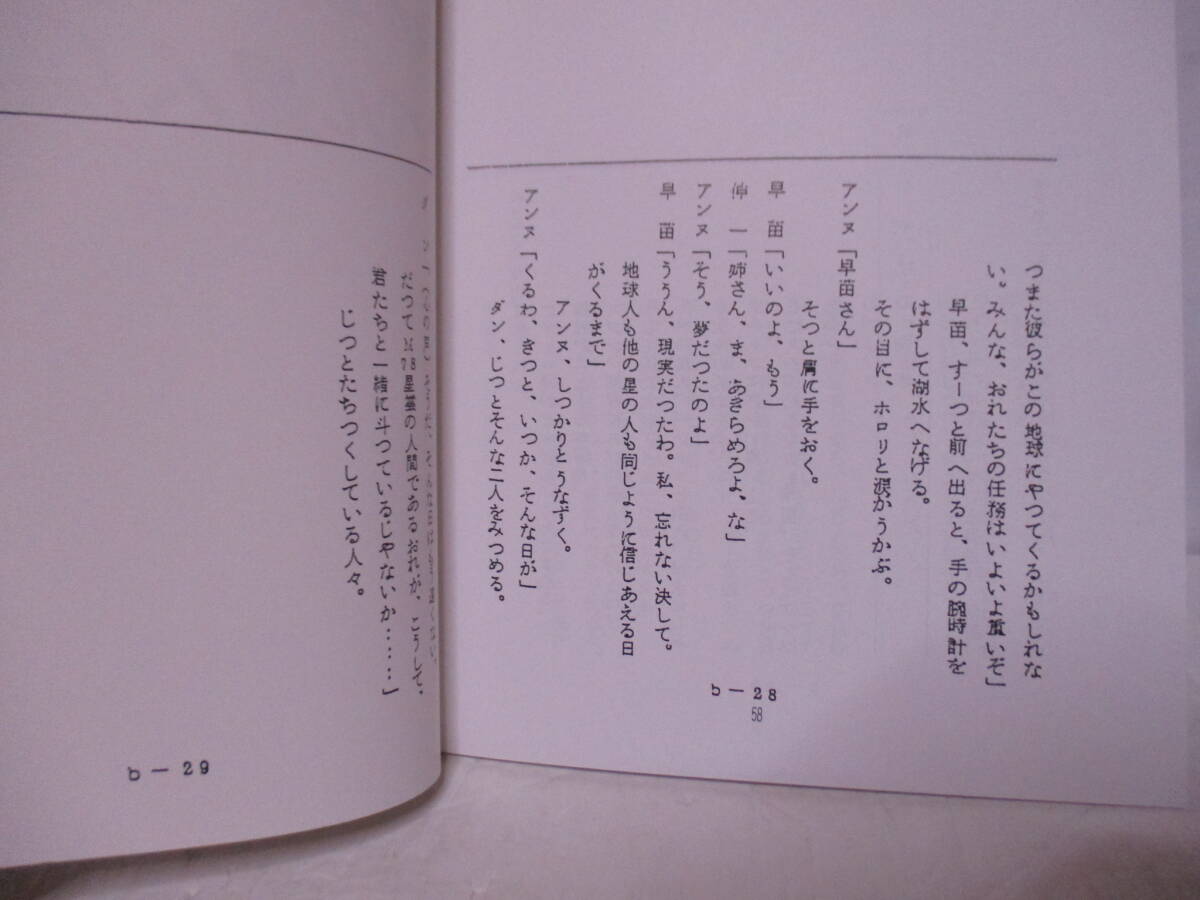 つまた彼らがこの地球にやつてくるかもしれな
い。みんな、おれたちの任務はいよいよ重いぞ」
早苗、すーつと前へ出ると、手の腕時計を
はずして湖水へなげる。
その目に、ホロリと涙がうかぶ。
アンヌ「早苗さん」
そつと肩に手をおく。
早　苗「いいのよ、もう」
伸　一「姉さん、ま、あきらめろよ、な」
アンヌ「そう、夢だつたのよ」
早　苗「ううん、現実だつたわ。私、忘れない決して。
地球人も他の星の人も同じように信じあえる日
がくるまで」
アンヌ、しつかりとうなずく。
アンヌ「くるわ、きつと、いつか、そんな日が」
ダン、じつとそんな二人をみつめる。
b－28
58
ン「心の声）そうだ、そんな日はもう遠くない。
だつてM78星雲の人間であるおれが、こうして、
君たちと一緒に斗つているじやないか……」
じつとたちつくしている人々。
b－29